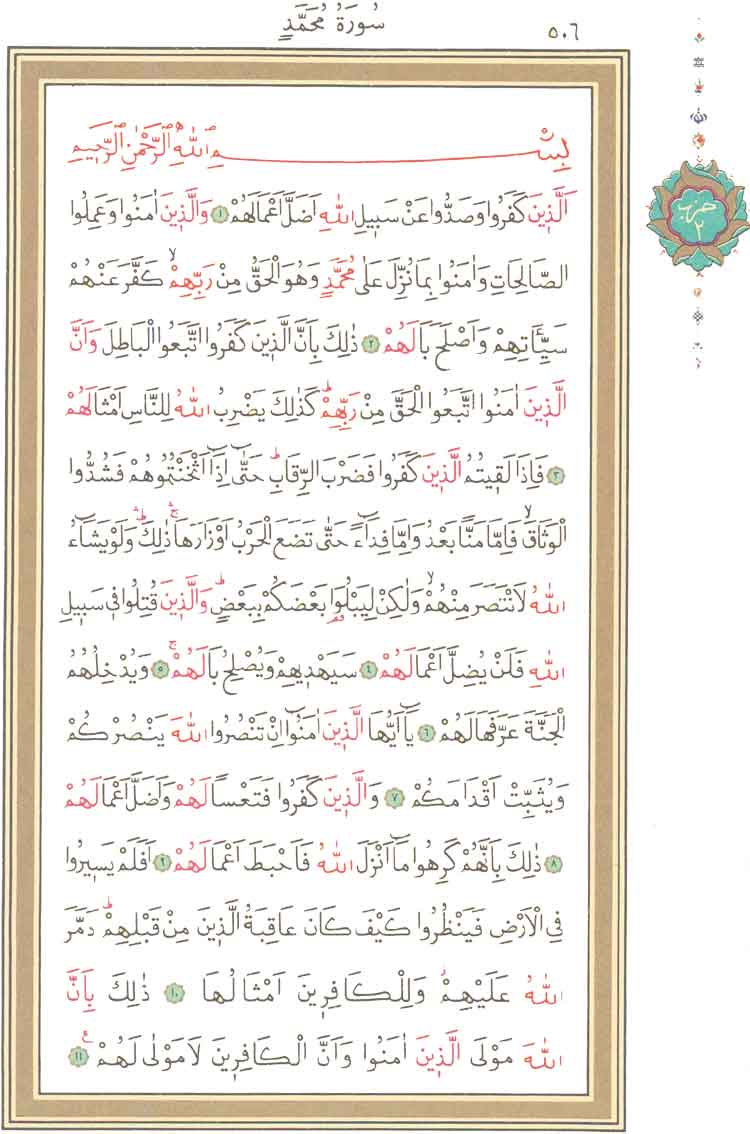 سُورَةُ مُحَمَّدٍ
٥٠٦
حزب
٢
بِسْمِ اللّٰهِ الرَّحْمٰنِ الرَّح۪يمِ
اَلَّذ۪ينَ كَفَرُوا وَصَدُّوا عَنْ سَب۪يلِ اللّٰهِ اَضَلَّ اَعْمَالَهُمْ ﴿١﴾ وَالَّذ۪ينَ اٰمَنُوا وَعَمِلُوا
الصَّالِحَاتِ وَاٰمَنُوا بِمَا نُزِّلَ عَلٰى مُحَمَّدٍ وَهُوَ الْحَقُّ مِنْ رَبِّهِمْۙ كَفَّرَ عَنْهُمْ
سَيِّـَٔاتِهِمْ وَاَصْلَحَ بَالَهُمْ ﴿٢﴾ ذٰلِكَ بِاَنَّ الَّذ۪ينَ كَفَرُوا اتَّبَعُوا الْبَاطِلَ وَاَنَّ
الَّذ۪ينَ اٰمَنُوا اتَّبَعُوا الْحَقَّ مِنْ رَبِّهِمْۜ كَذٰلِكَ يَضْرِبُ اللّٰهُ لِلنَّاسِ اَمْثَالَهُمْ
﴿٣﴾ فَاِذَا لَق۪يتُمُ الَّذ۪ينَ كَفَرُوا فَضَرْبَ الرِّقَابِۜ حَتّٰٓى اِذَٓا اَثْخَنْتُمُوهُمْ فَشُدُّوا
الْوَثَاقَۙ فَاِمَّا مَنًّا بَعْدُ وَاِمَّا فِدَٓاءً حَتّٰى تَضَعَ الْحَرْبُ اَوْزَارَهَاۚۛ ذٰلِكَۜۛ وَلَوْ يَشَٓاءُ
اللّٰهُ لَانْتَصَرَ مِنْهُمْۙ وَلٰكِنْ لِيَبْلُوَ۬ا بَعْضَكُمْ بِبَعْضٍۜ وَالَّذ۪ينَ قُتِلُوا ف۪ي سَب۪يلِ
اللّٰهِ فَلَنْ يُضِلَّ اَعْمَالَهُمْ ﴿٤﴾ سَيَهْد۪يهِمْ وَيُصْلِحُ بَالَهُمْۚ ﴿٥﴾ وَيُدْخِلُهُمُ
الْجَنَّةَ عَرَّفَهَا لَهُمْ ﴿٦﴾ يَٓا اَيُّهَا الَّذ۪ينَ اٰمَنُٓوا اِنْ تَنْصُرُوا اللّٰهَ يَنْصُرْكُمْ
وَيُثَبِّتْ اَقْدَامَكُمْ ﴿٧﴾ وَالَّذ۪ينَ كَفَرُوا فَتَعْساً لَهُمْ وَاَضَلَّ اَعْمَالَهُمْ
﴿٨﴾ ذٰلِكَ بِاَنَّهُمْ كَرِهُوا مَٓا اَنْزَلَ اللّٰهُ فَاَحْبَطَ اَعْمَالَهُمْ ﴿٩﴾ اَفَلَمْ يَس۪يرُوا
فِي الْاَرْضِ فَيَنْظُرُوا كَيْفَ كَانَ عَاقِبَةُ الَّذ۪ينَ مِنْ قَبْلِهِمْۜ دَمَّرَ
اللّٰهُ عَلَيْهِمْۘ وَلِلْكَافِر۪ينَ اَمْثَالُهَا ﴿١٠﴾ ذٰلِكَ بِاَنَّ
اللّٰهَ مَوْلَى الَّذ۪ينَ اٰمَنُوا وَاَنَّ الْكَافِر۪ينَ لَا مَوْلٰى لَهُمْ۟ ﴿١١﴾